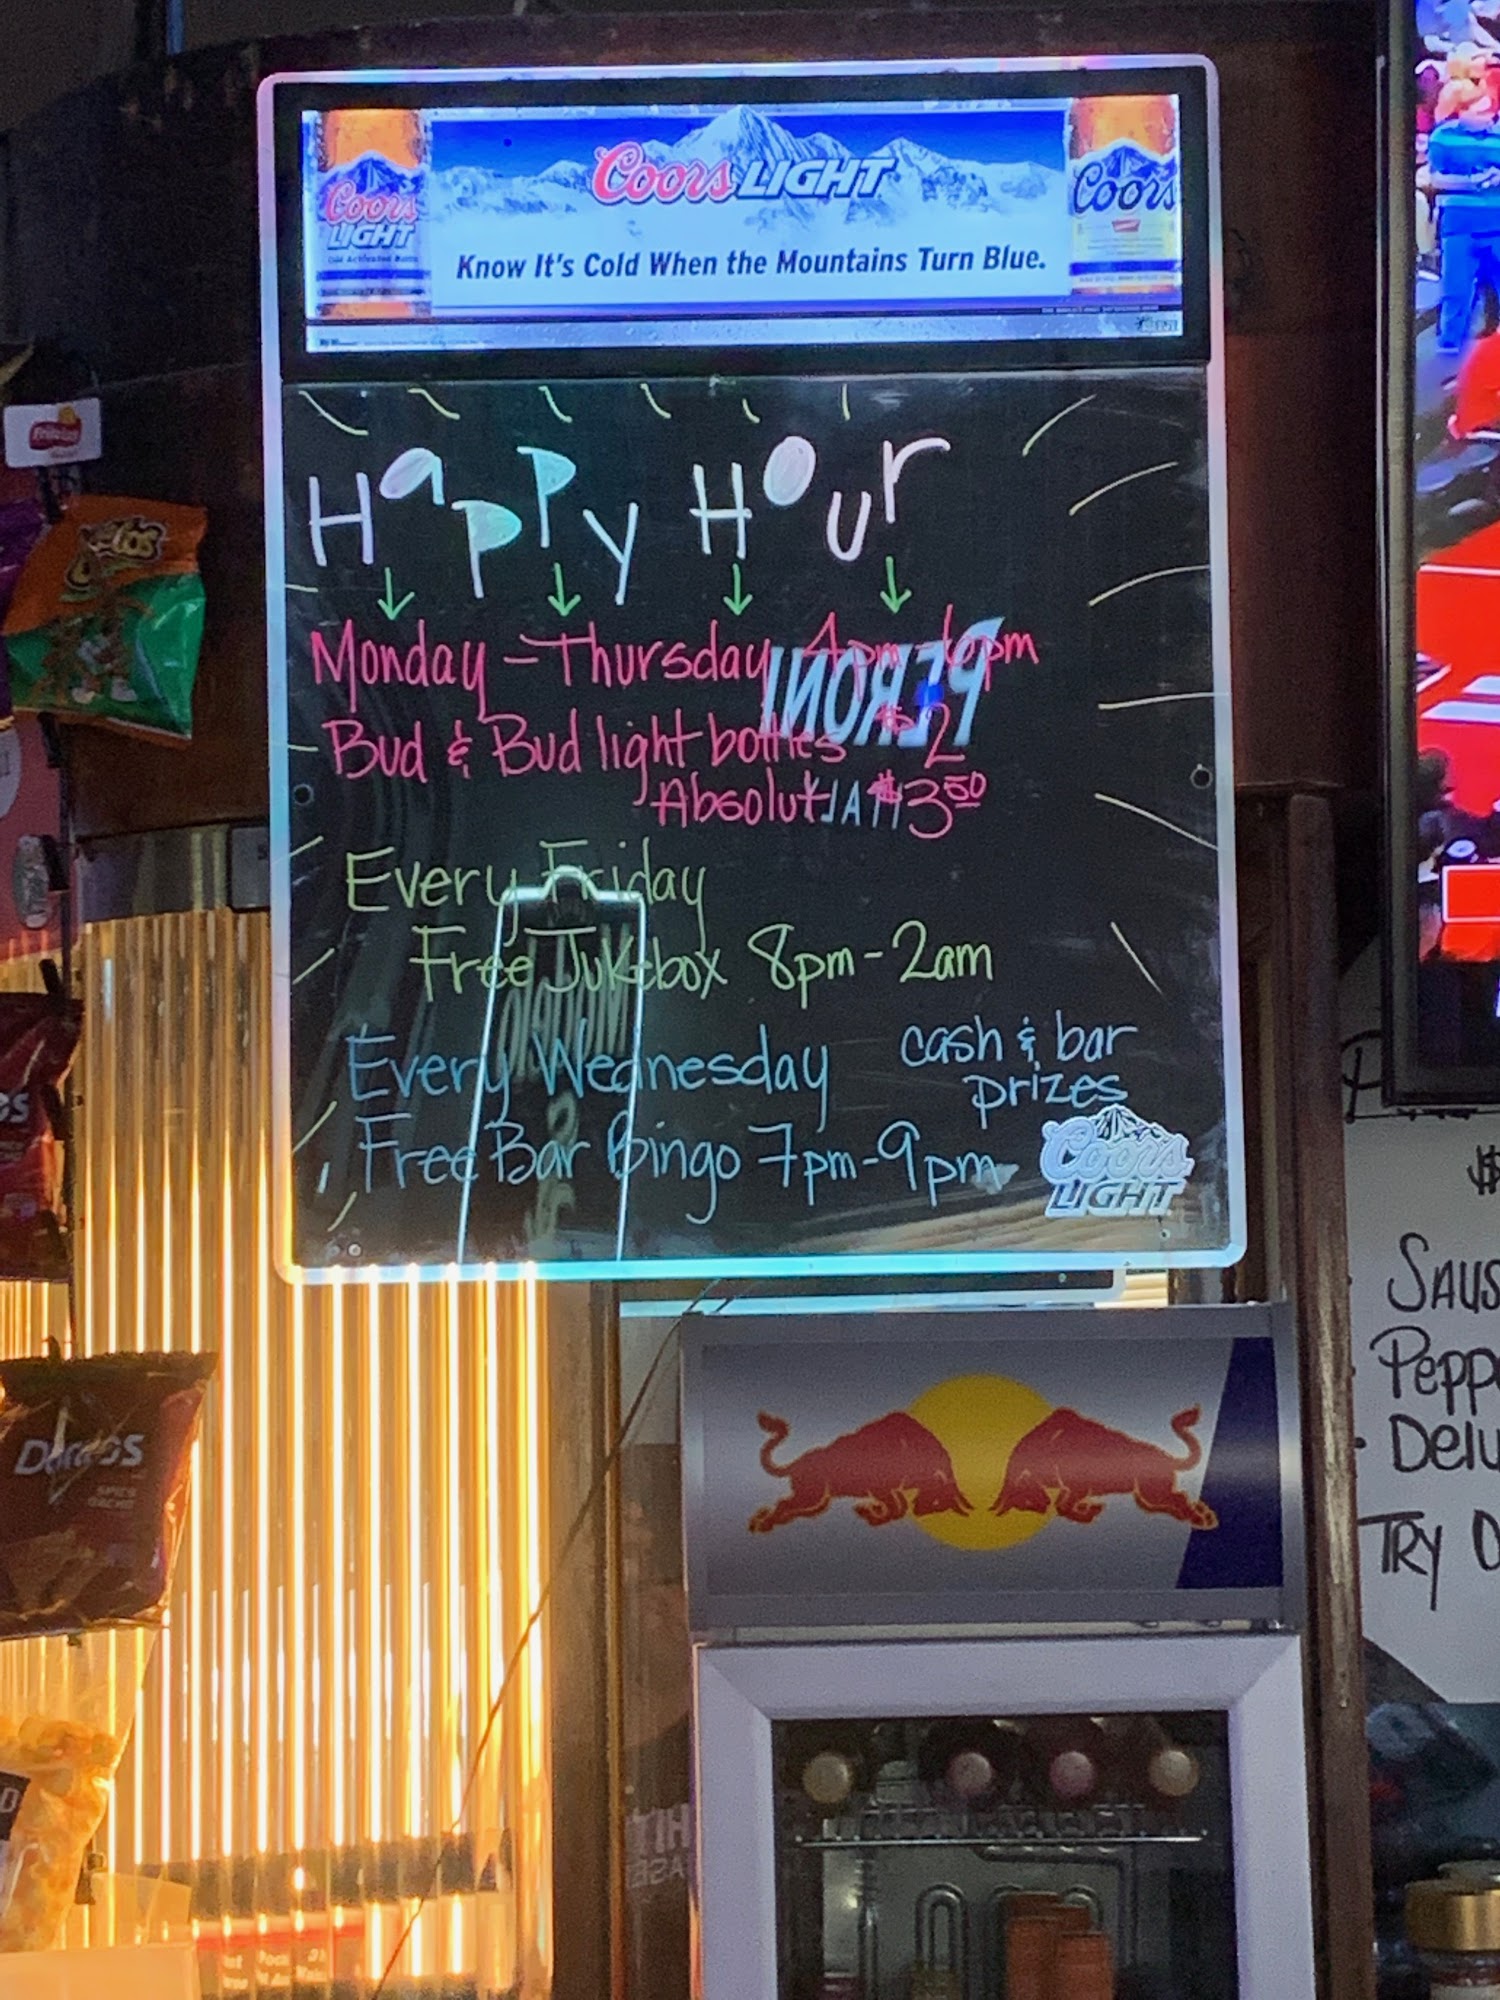 Coors LIGHT
Coors
LIGHT
Coors
Know It's Cold When the Mountains Turn Blue.
Happy Hour
Monday - Thursday 4pm - 6pm
Bud & Bud light bottles $2
Absolut $3.50
PERONI
Every Friday
Free Jukebox 8pm - 2am
Every Wednesday
cash & bar
prizes
Free Bar Bingo 7pm - 9pm
Coors
LIGHT
Doritos
SPICY
NACHO
SAUS
PEPP
DELU
TRY